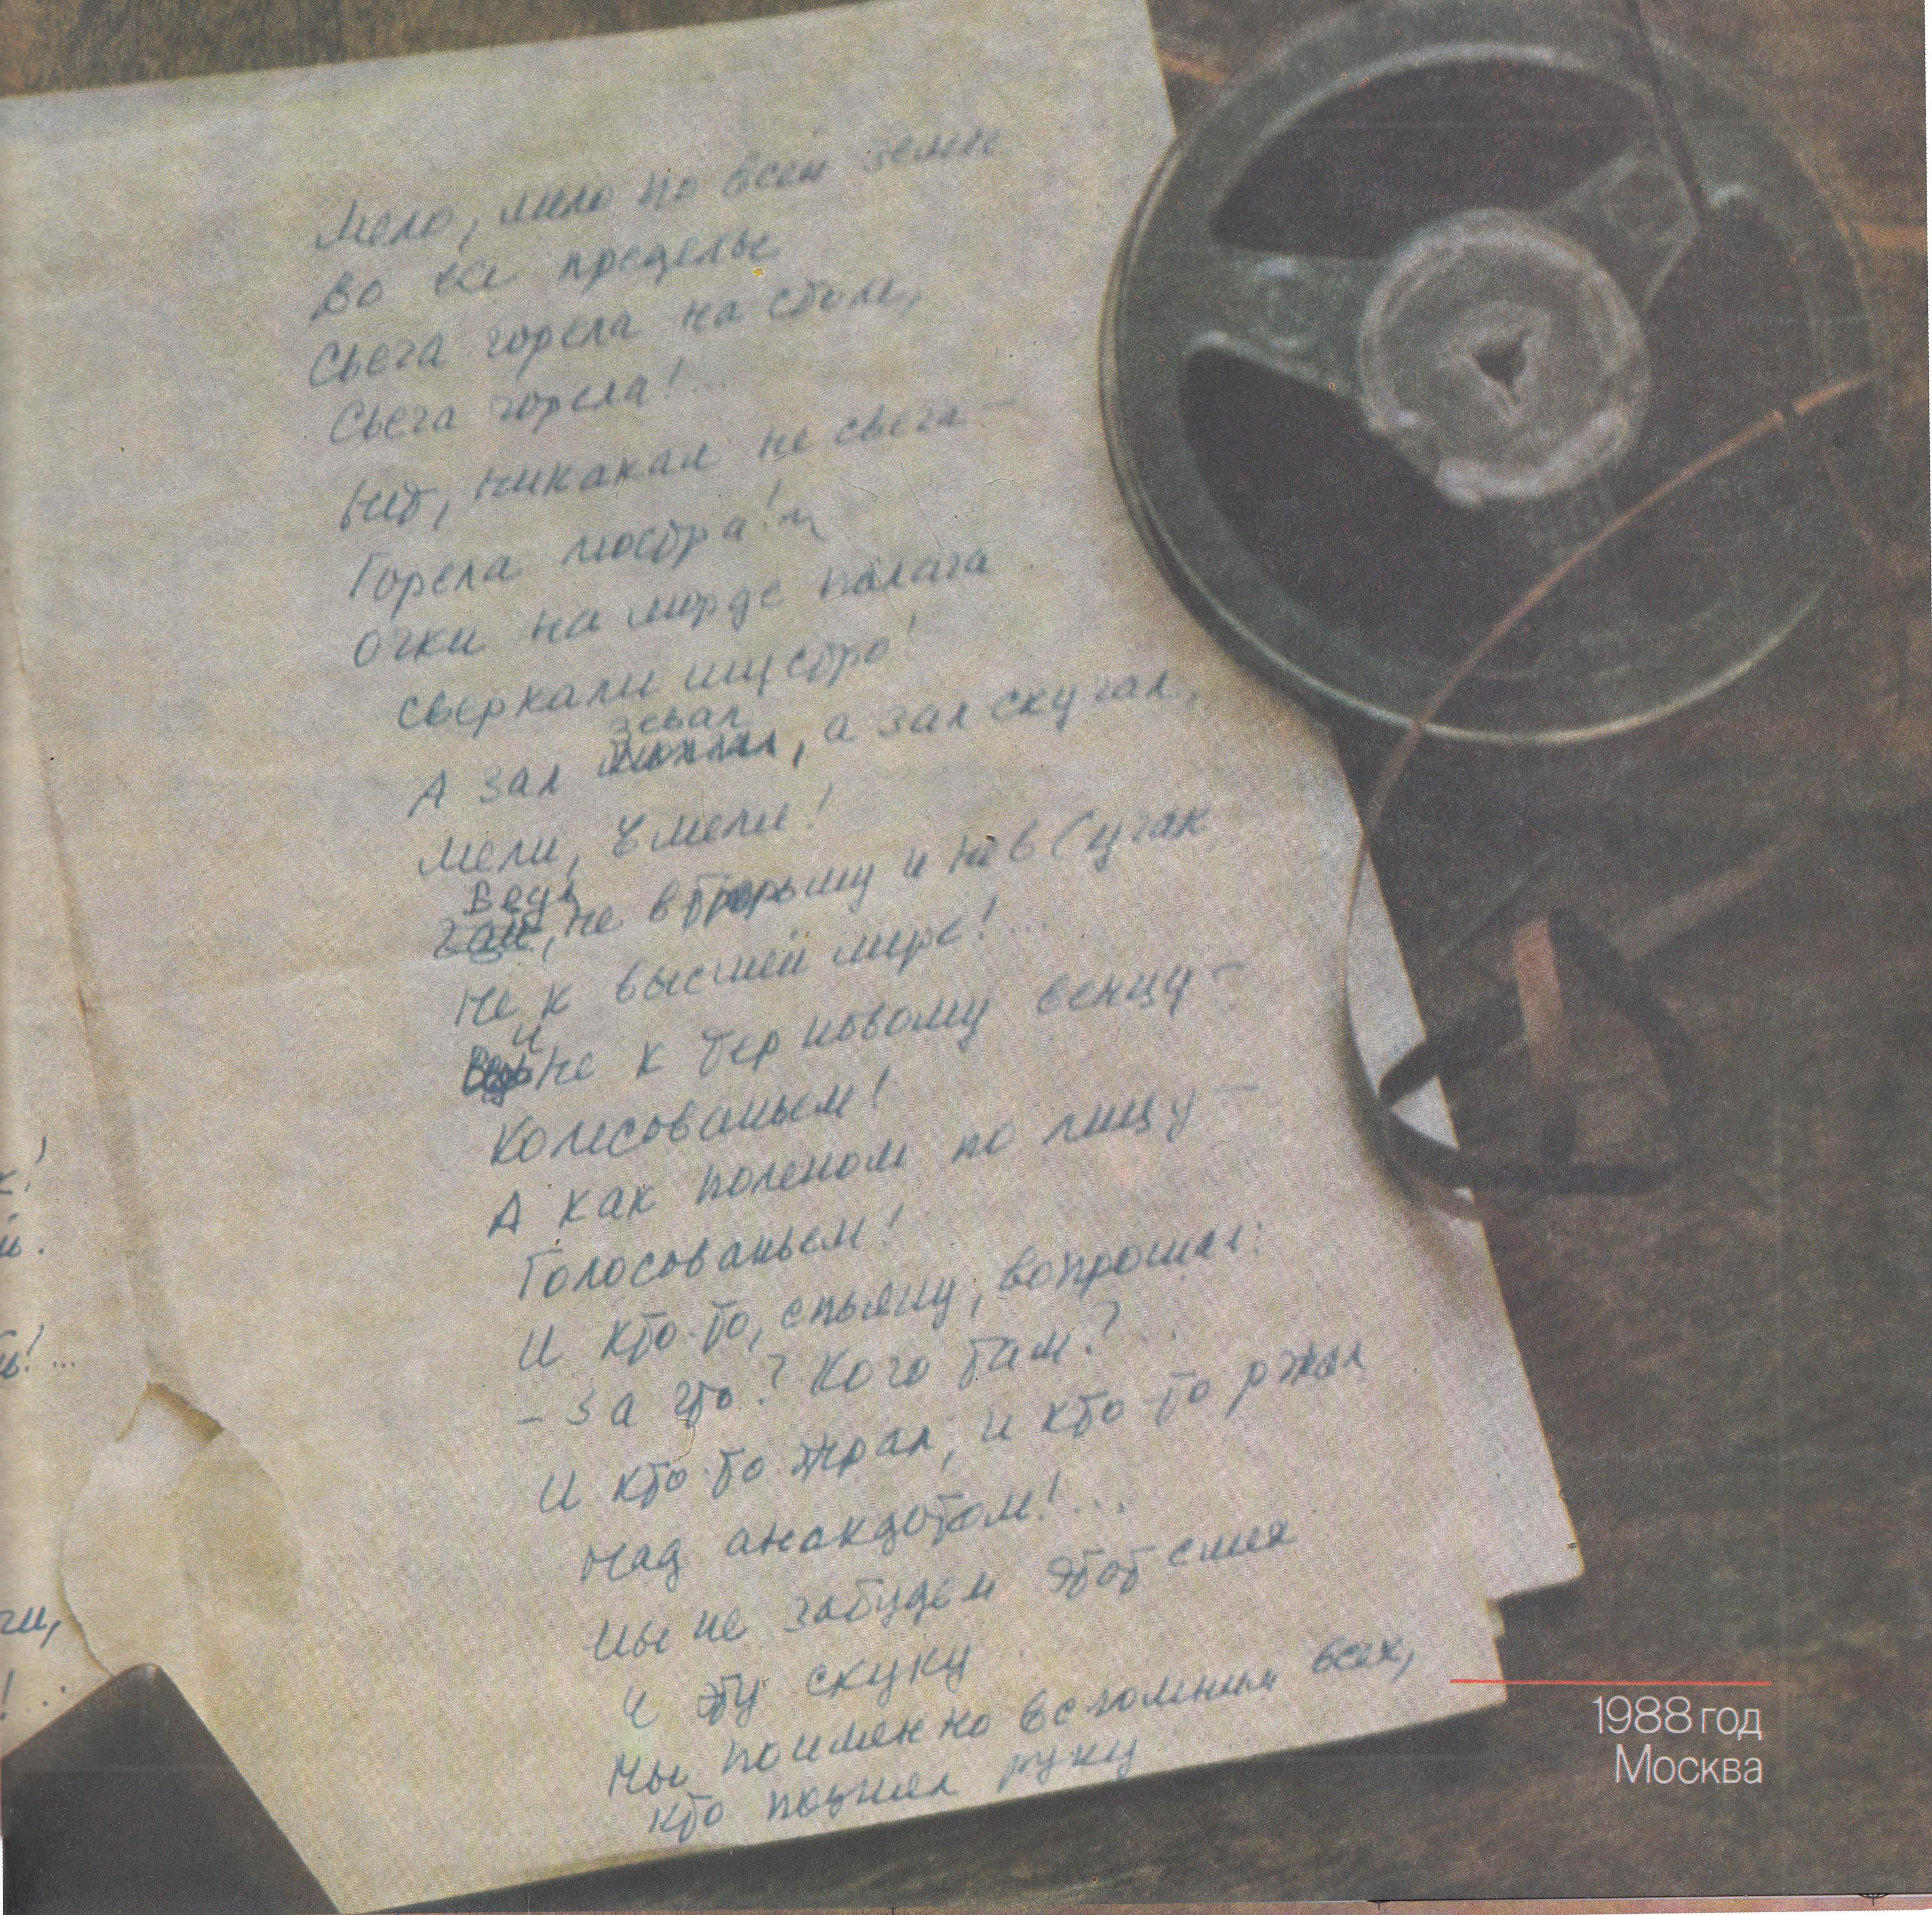 Мело, мело по всей земле
Во все пределы
Свеча горела на столе,
Свеча горела!...
Нет, никакая не свеча —
Горела люстра!
Очки на морде палача
сверкали шустро!
зевал
А зал , а зал скучал,
Мели, Емеля!
Ведь
не в тюрьму и не в Сучан
Не к высшей мере!...
И
Ведь не к терновому венцу —
Колесованьем!
А как поленом по лицу —
Голосованьем!
И кто-то, спьяну, вопрошал:
- За что? Кого там?...
И кто-то жрал, и кто-то ржал
Над анекдотом!...
Мы не забудем этот смех
И эту скуку
Мы поименно вспомним всех,
кто поднял руку
х!
й.
ь!...
ги,
!..
1988 год
Москва